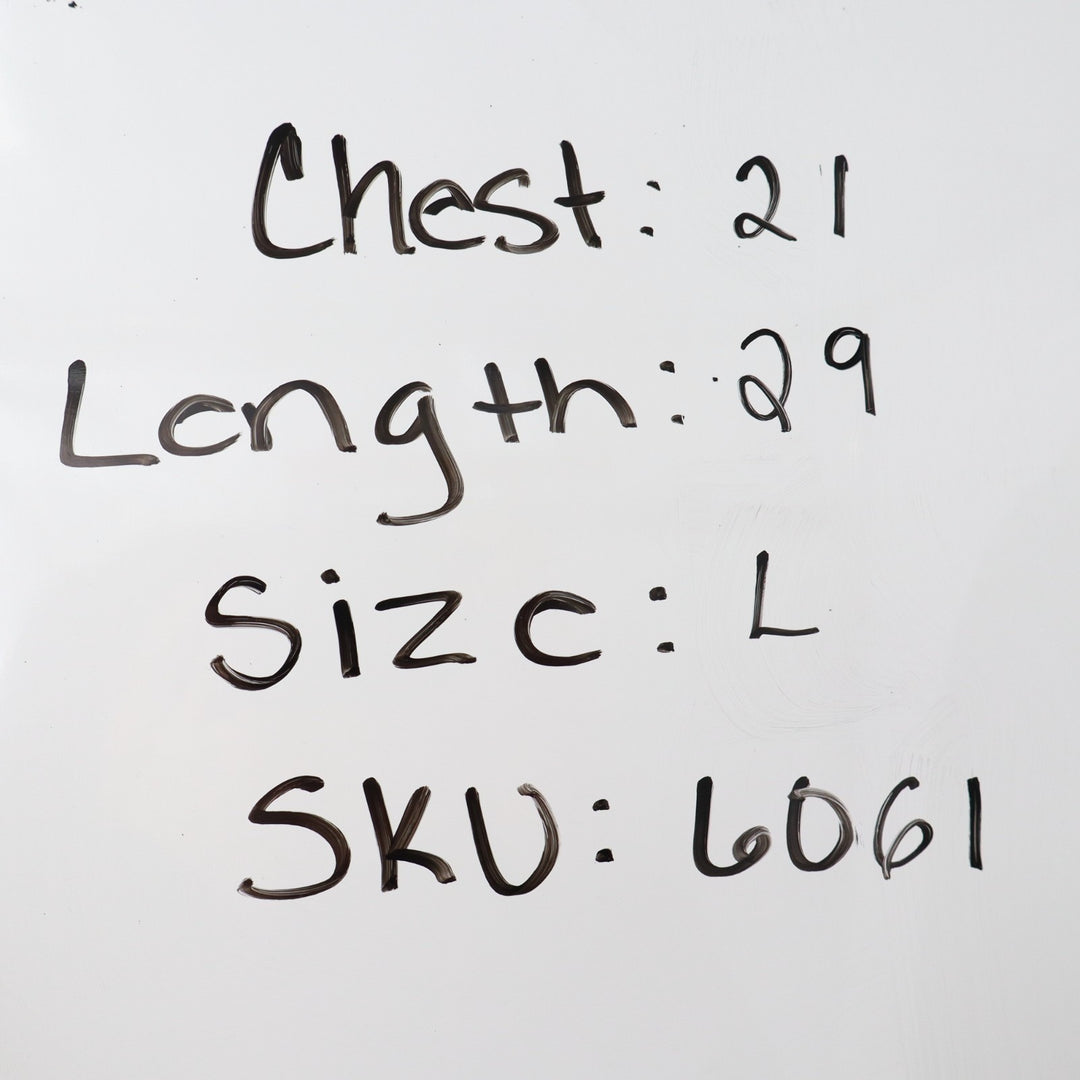 Chest: 21
Length: 29
Size: L
SKU: 6061